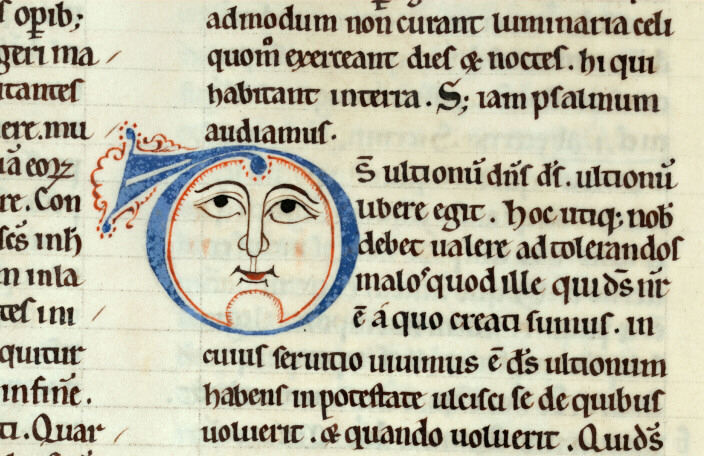 ſ opib;
geri ma
itanteſ
ere. mu
iā eoꝝ
re. Con
ſcſ inh
m inla
teſ ini
quitur
infine.
ti. Quar
admodum non curant luminaria celi
quom̊ exerceant dieſ & nocteſ. hi qui
habitant interra. S; iam pſalmum
audiamuſ.
D̄S ultionū dn̄ſ dſ̄. ultionū
libere egit. Hoc utiq; nob̄
debet ualere ad toleꝛandoſ
maloſ quod ille qui d̄s nr̄
ē á quo creati ſumuſ. in
cuiuſ ſeruitio uiuimus ē d̄s ultionum
habenſ in poteſtate ulciſci ſe de quibuſ
uoluerit. & quando uoluerit. Quid̄s